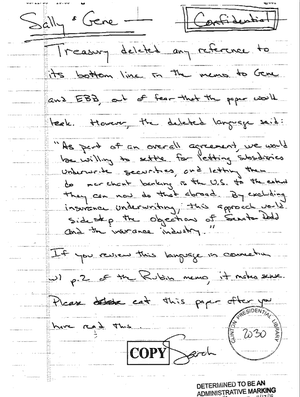 Sally & Gene —
Confidential
Treasury deleted any reference to
its bottom line in the memo to Gene
and EBB, out of fear that the paper would
leak. However, the deleted language said:
"As part of an overall agreement, we would
be willing to settle for letting subsidiaries
underwrite securities, and letting them
do merchant banking in the U.S. to the extent
they can now do that abroad. By excluding
insurance underwriting, this approach would
sidestep the objections of Senator Dodd
and the insurance industry."
If you review this language in connection
w/ p.2 of the Rubin memo, it makes sense.
Please eat this paper after you
have read this...
Sarah
COPY
CLINTON PRESIDENTIAL LIBRARY
2030
DETERMINED TO BE AN
ADMINISTRATIVE MARKING